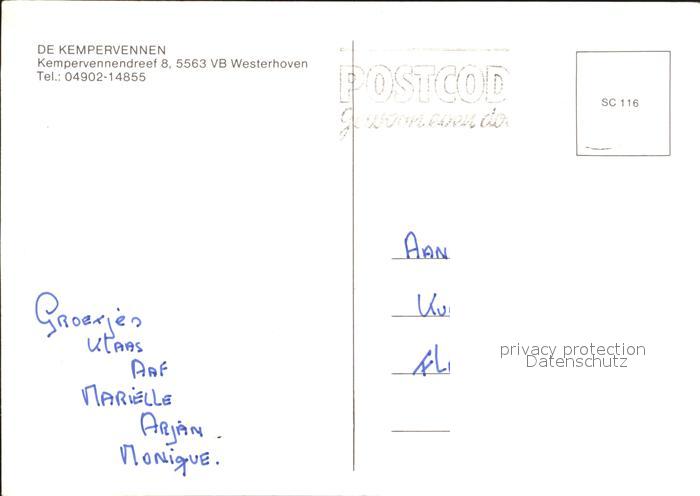 DE KEMPERVENNEN
Kempervennendreef 8, 5563 VB Westerhoven
Tel.: 04902-14855
POSTCOD
gewoon even do
SC 116
Aan
Groetjes
Klaas
Aaf
Mariëlle
Arjan.
Monique.
privacy protection
Datenschutz